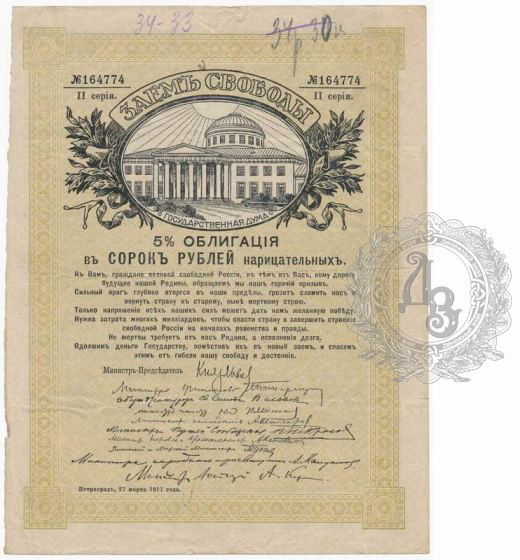 34-33
34 30
р
№164774 №164774
II серія. II серія.
ЗАЕМЪ СВОБОДЫ
ГОСУДАРСТВЕННАЯ ДУМА
5% ОБЛИГАЦІЯ
въ СОРОКЪ РУБЛЕЙ нарицательныхъ.
Къ Вамъ, граждане великой свободной Россіи, къ тѣмъ изъ Васъ, кому дорого
будущее нашей Родины, обращаемъ мы нашъ горячій призывъ.
Сильный врагъ глубоко вторгся въ наши предѣлы, грозитъ сломить насъ и
вернуть страну къ старому, нынѣ мертвому строю.
Только напряженіе всѣхъ нашихъ силъ можетъ дать намъ желанную побѣду.
Нужна затрата многихъ милліардовъ, чтобы спасти страну и завершить строеніе
свободной Россіи на началахъ равенства и правды.
Не жертвы требуетъ отъ насъ Родина, а исполненія долга.
Одолжимъ деньги Государству, помѣстивъ ихъ въ новый заемъ, и спасемъ
этимъ отъ гибели нашу свободу и достояніе.
Министръ-Предсѣдатель Князь Львов
Министръ финансовъ
Оберъ-прокуроръ Св. Синода В. Львовъ
А. Мануйлов
Министръ юстиціи А. Кер
Петроградъ, 27 марта 1917 года.
ДЗ